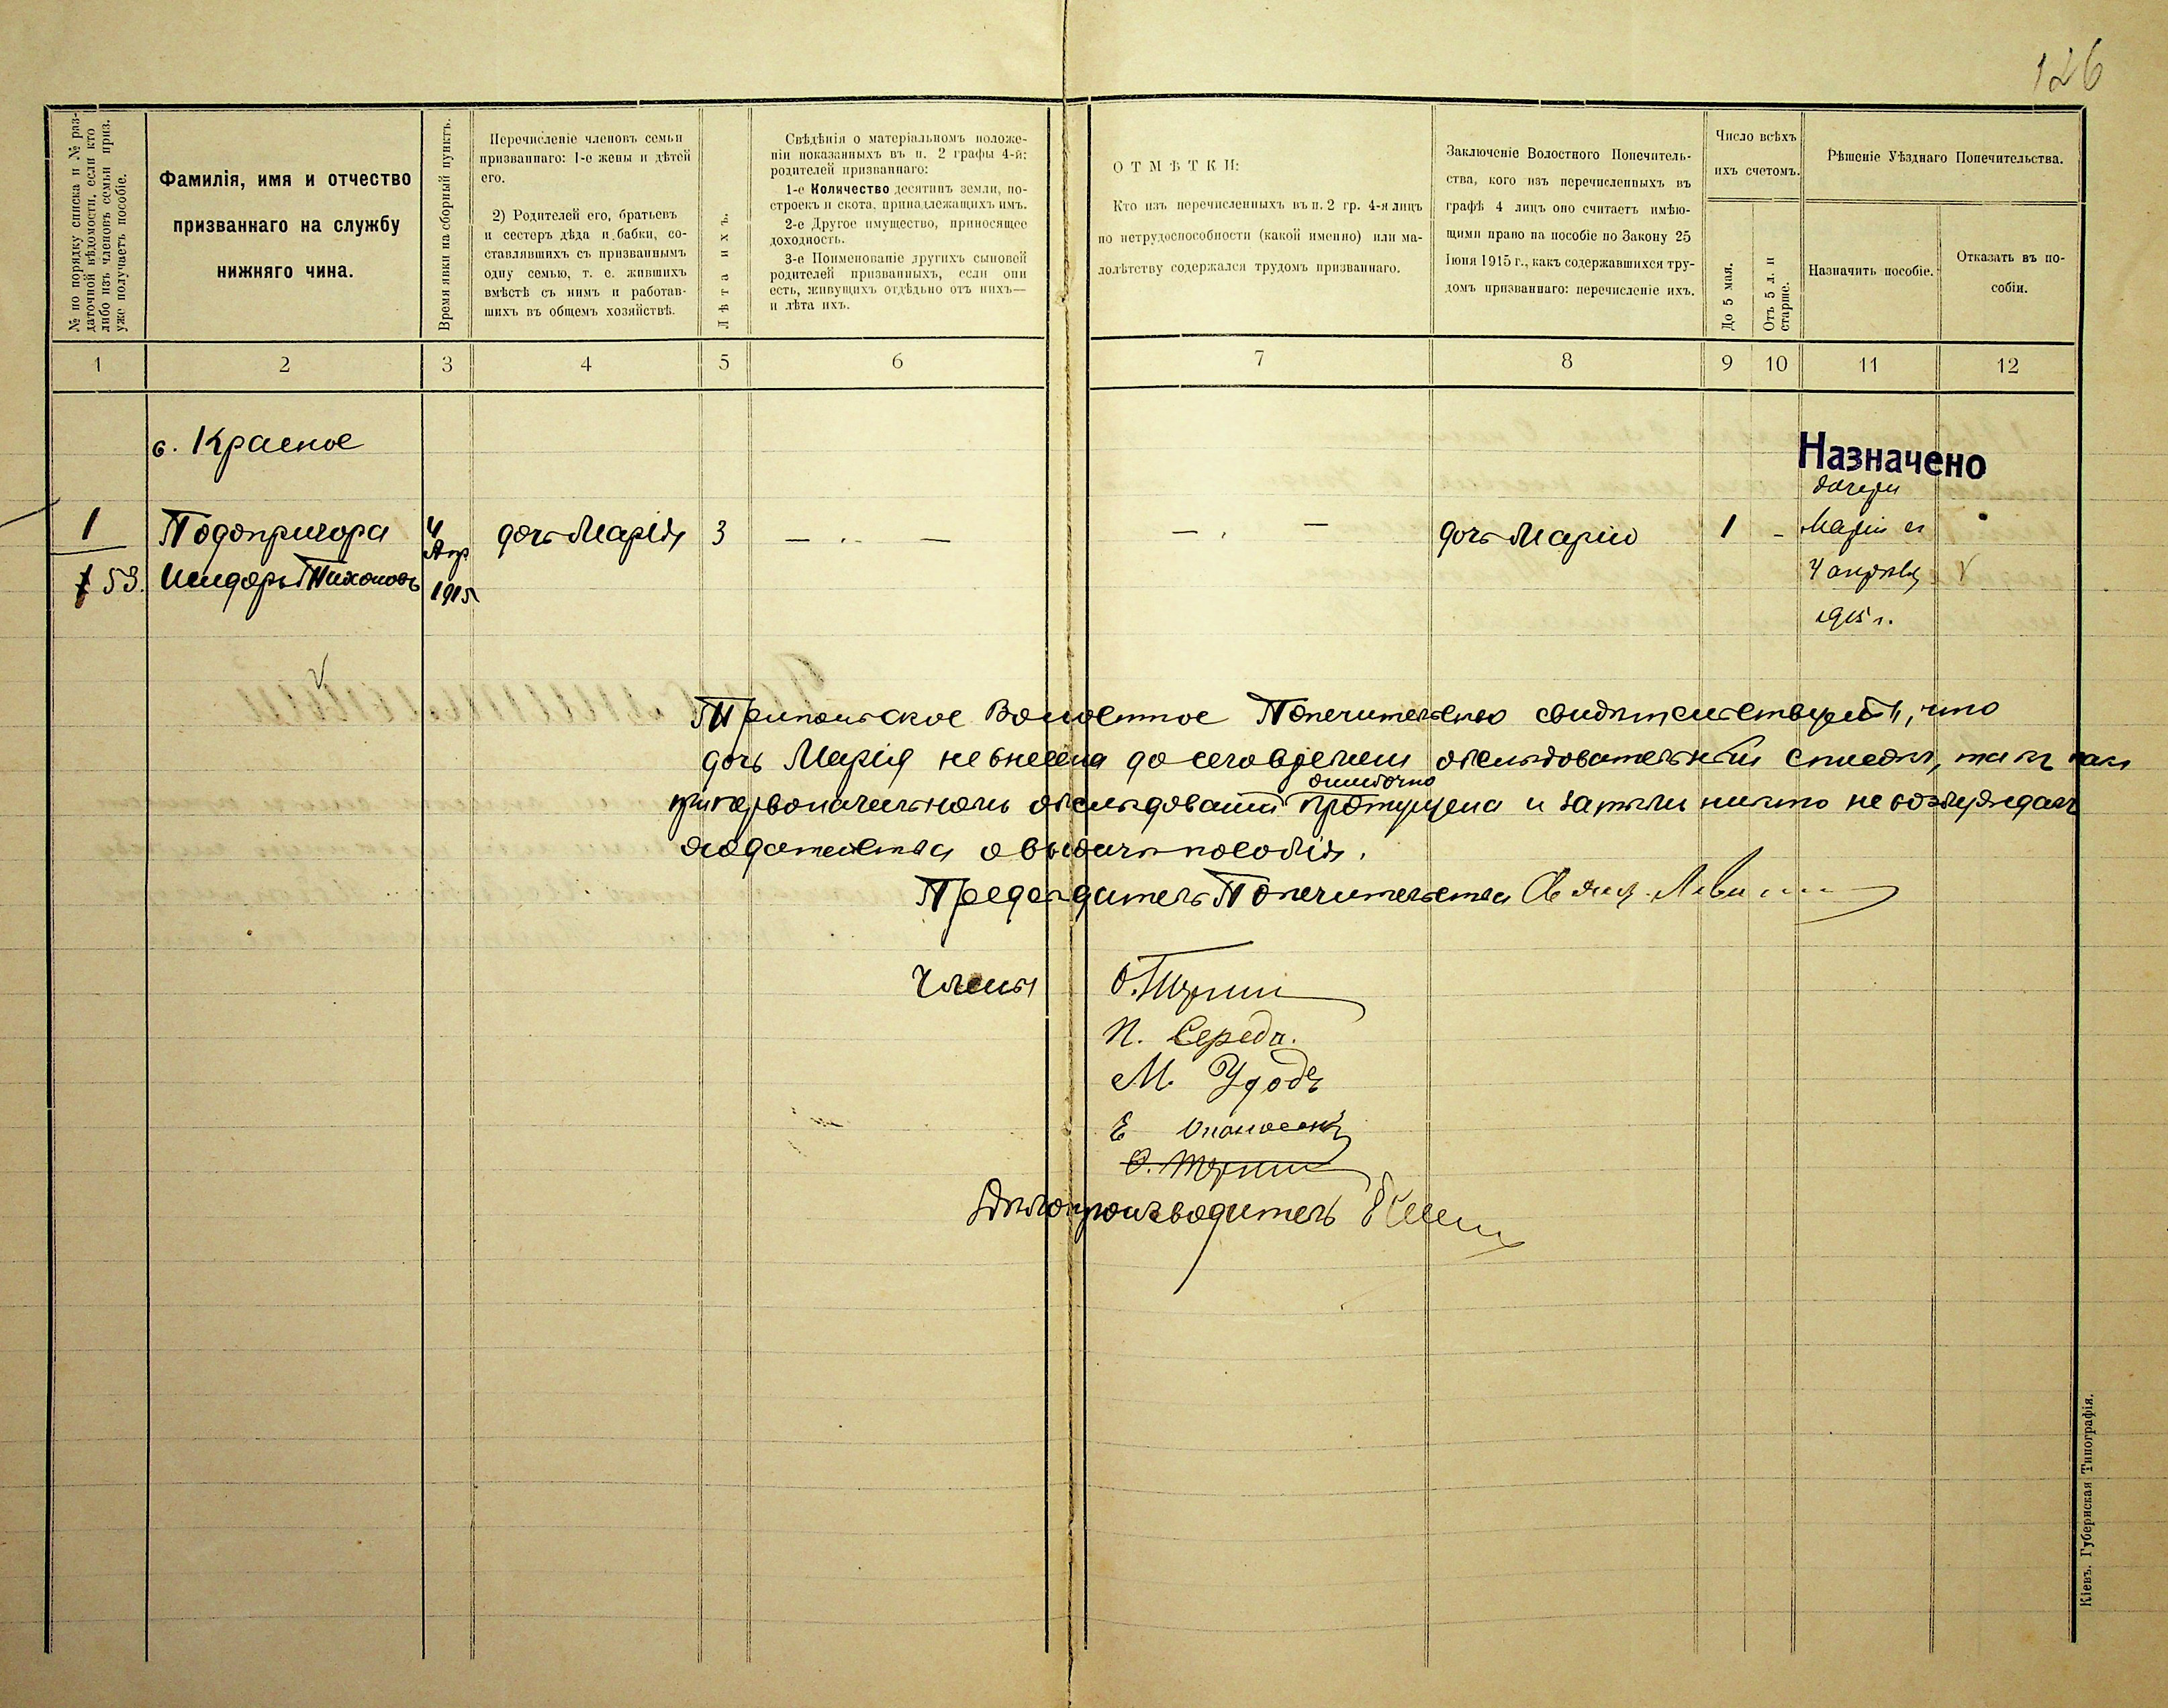 126
№ по порядку списка и № раз-
даточной вѣдомости, если кто
либо изъ членовъ семьи приз.
уже получаетъ пособіе.
Фамилія, имя и отчество
призваннаго на службу
нижняго чина.
Время явки на сборный пунктъ.
Перечисленіе членовъ семьи
призваннаго: 1-е жены и дѣтей
его.
2) Родителей его, братьевъ
и сестеръ дѣда и бабки, со-
ставлявшихъ съ призваннымъ
одну семью, т. е. жившихъ
вмѣстѣ съ нимъ и работав-
шихъ въ общемъ хозяйствѣ.
Лѣта ихъ.
Свѣдѣнія о матеріальномъ положе-
ніи показанныхъ въ п. 2 графы 4-й:
родителей призваннаго:
1-е Количество десятинъ земли, по-
строекъ и скота, принадлежащихъ имъ.
2-е Другое имущество, приносящее
доходность.
3-е Поименованіе другихъ сыновей
родителей призванныхъ, если они
есть, живущихъ отдѣльно отъ нихъ—
и лѣта ихъ.
ОТМѢТКИ:
Кто изъ перечисленныхъ въ п. 2 гр. 4-я лицъ
по нетрудоспособности (какой именно) или ма-
лолѣтству содержался трудомъ призваннаго.
Заключеніе Волостного Попечитель-
ства, кого изъ перечисленныхъ въ
графѣ 4 лицъ оно считаетъ имѣю-
щими право на пособіе по Закону 25
Іюня 1915 г., какъ содержавшихся тру-
домъ призваннаго: перечисленіе ихъ.
Число всѣхъ
ихъ счетомъ.
До 5 мая.
Отъ 5 л. и
старше.
Рѣшеніе Уѣзднаго Попечительства.
Назначить пособіе.
Отказать въ по-
собіи.
1 2 3 4 5 6 7 8 9 10 11 12
с. Красное
Назначено
дочери
1 Подопригора 4 дочь Марія 3 — .. — — . — дочь Марію 1 - Маріи съ
Апр
53. Исидоръ Тихоновъ 1915 4 апрѣля
1915 г.
Трипольское Волостное Попечительство свидѣтельствуетъ, что
дочь Марія не внесена до сего времени обслѣдовательный списокъ, такъ какъ
ошибочно
при первоначальномъ обслѣдованіи пропущена и затѣмъ никто не возбуждалъ
ходатайства о выдачѣ пособія.
Предсѣдатель Попечительства Свящ.
Члены
П. Середа.
М. Удодъ
Е
Дѣлопроизводитель
Кіевъ. Губернская Типографія.